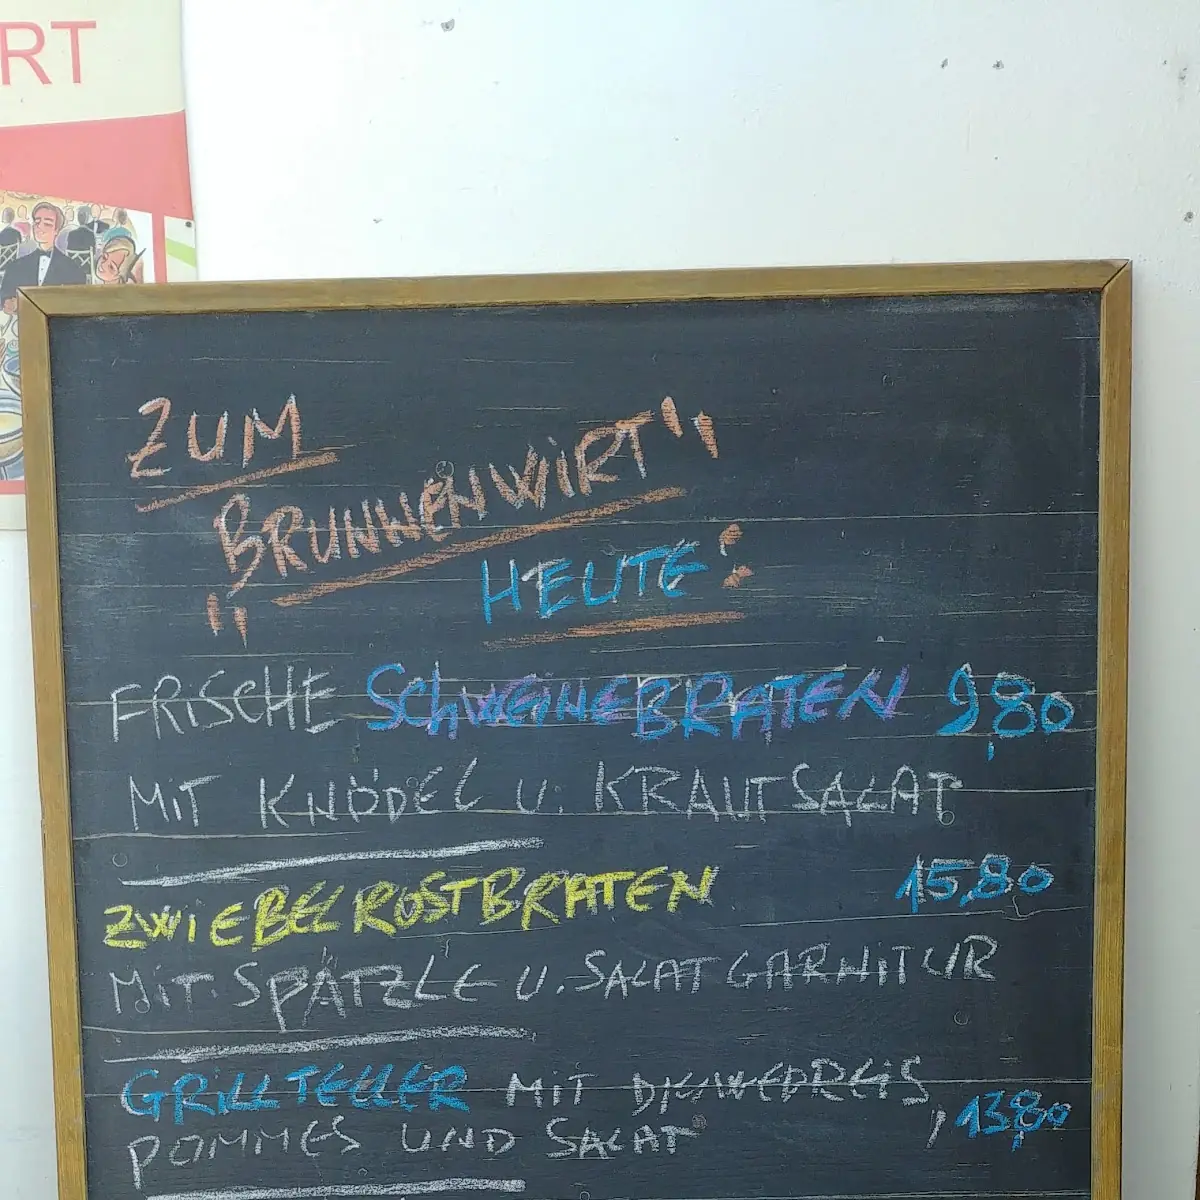 RT
ZUM
BRUNNENWIRT"
" HEUTE:
FRISCHE SCHWEINEBRATEN 9,80
MIT KNÖDEL U. KRAUTSALAT
ZWIEBELROSTBRATEN 15,80
MIT SPÄTZLE U. SALATGARNITUR
GRILLTELLER MIT DJUWEDREIS,
POMMES UND SALAT 13,80